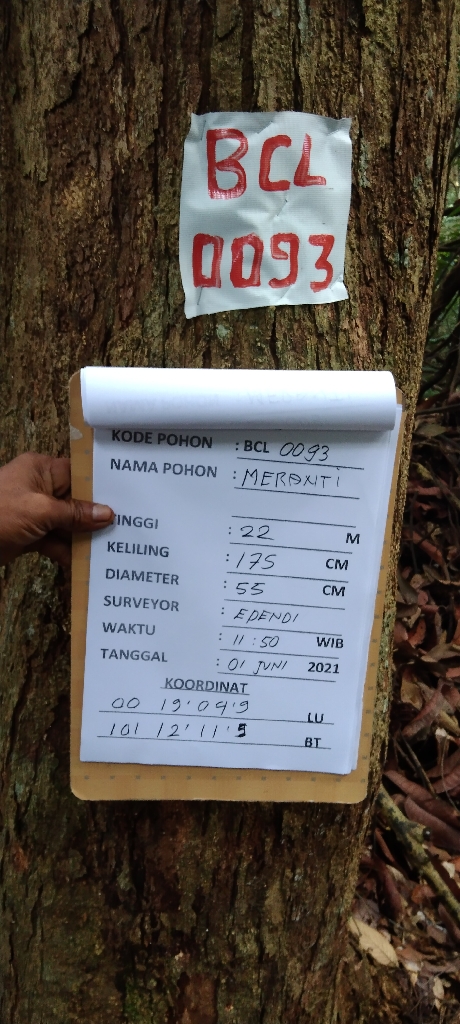 BCL
0093
KODE POHON : BCL 0093
NAMA POHON : MERANTI
TINGGI : 22 M
KELILING : 175 CM
DIAMETER : 55 CM
SURVEYOR : EPENDI
WAKTU : 11:50 WIB
TANGGAL : 01 JUNI 2021
KOORDINAT
00 19' 04' 9 LU
101 12' 11' 5 BT